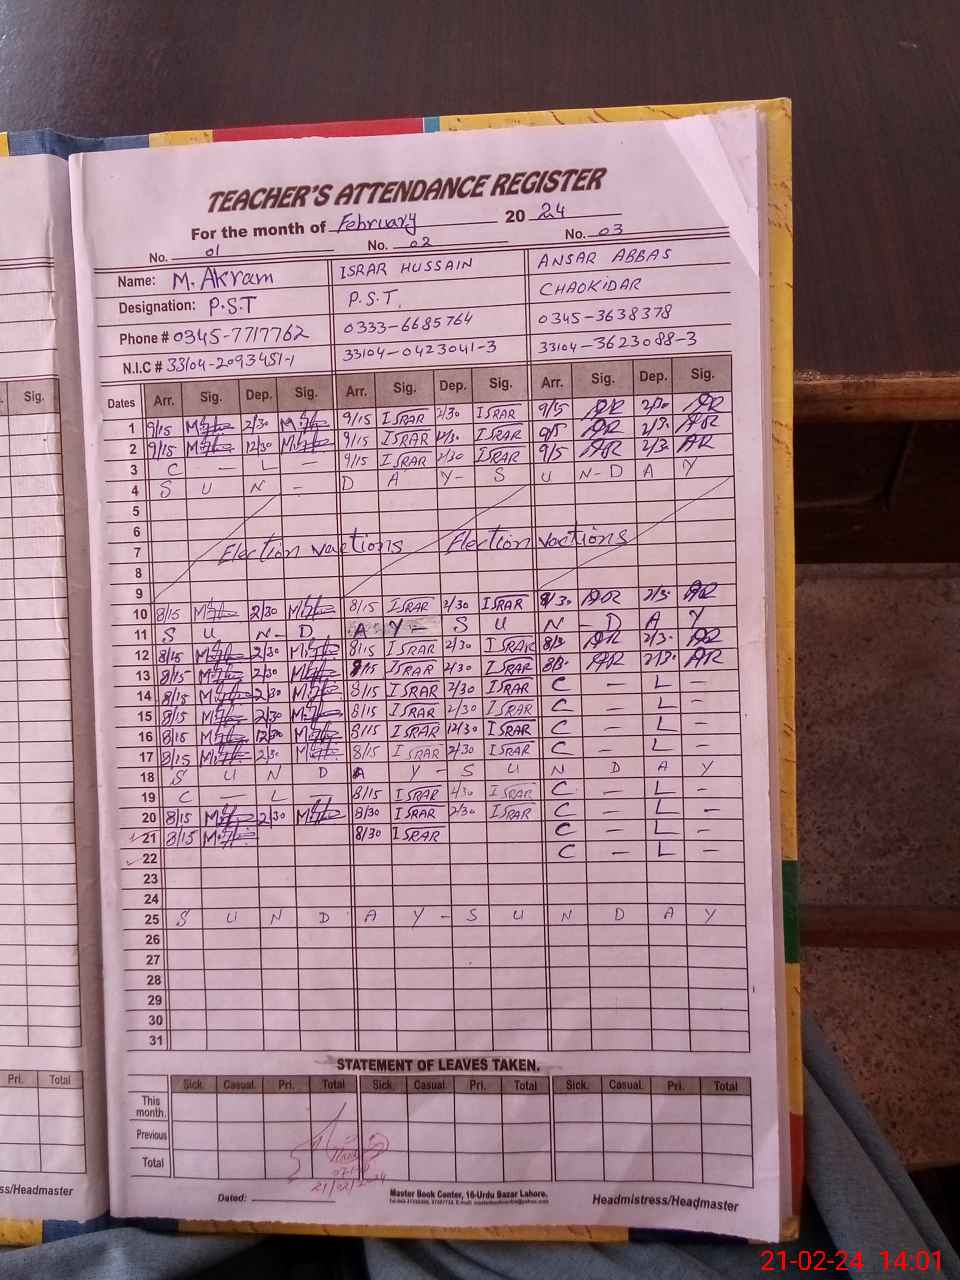 TEACHER'S ATTENDANCE REGISTER
For the month of February 2024
No. 01 No. 02 No. 03
Name: M. Akram ISRAR HUSSAIN ANSAR ABBAS
Designation: P.S.T P.S.T. CHAOKIDAR
Phone # 0345-7717762 0333-6685764 0345-3638378
N.I.C # 33104-2093451-1 33104-0423041-3 33104-3623088-3
Sig. Dates Arr. Sig. Dep. Sig. Arr. Sig. Dep. Sig. Arr. Sig. Dep. Sig.
1 9/15 2/30 9/15 ISRAR 2/30 ISRAR 9/15 AR 2/30 AR
2 9/15 12/30 9/15 ISRAR 12/30 ISRAR 9/5 AR 2/3. AR
3 C - L - 9/15 ISRAR 2/30 ISRAR 9/5 AR 2/3. AR
4 S U N - D A Y - S U N - D A Y
5
6
7 Election vactions Election vactions
8
9
10 8/15 2/30 8/15 ISRAR 2/30 ISRAR 8/30 AR 2/3. AR
11 S U N - D A Y - S U N - D A Y
12 8/15 2/30 8/15 ISRAR 2/30 ISRAR 8/3. AR 2/3. AR
13 8/15 2/30 8/15 ISRAR 2/30 ISRAR 8/3. AR 2/3. AR
14 8/15 2/30 8/15 ISRAR 2/30 ISRAR C - L -
15 8/15 2/30 8/15 ISRAR 2/30 ISRAR C - L -
16 8/15 12/30 8/15 ISRAR 12/30 ISRAR C - L -
17 8/15 2/30 8/15 ISRAR 2/30 ISRAR C - L -
18 S U N D A Y - S U N D A Y
19 C - L - 8/15 ISRAR 2/30 ISRAR C - L -
20 8/15 2/30 8/30 ISRAR 2/30 ISRAR C - L -
21 8/15 8/30 ISRAR C - L -
22 C - L -
23
24
25 S U N D A Y - S U N D A Y
26
27
28
29
30
31
STATEMENT OF LEAVES TAKEN.
Pri. Total Sick. Casual. Pri. Total Sick. Casual. Pri. Total Sick. Casual. Pri. Total
This month.
Previous
Total
21/02/2024
Dated:
Master Book Center, 16-Urdu Bazar Lahore.
ss/Headmaster Headmistress/Headmaster
21-02-24 14:01